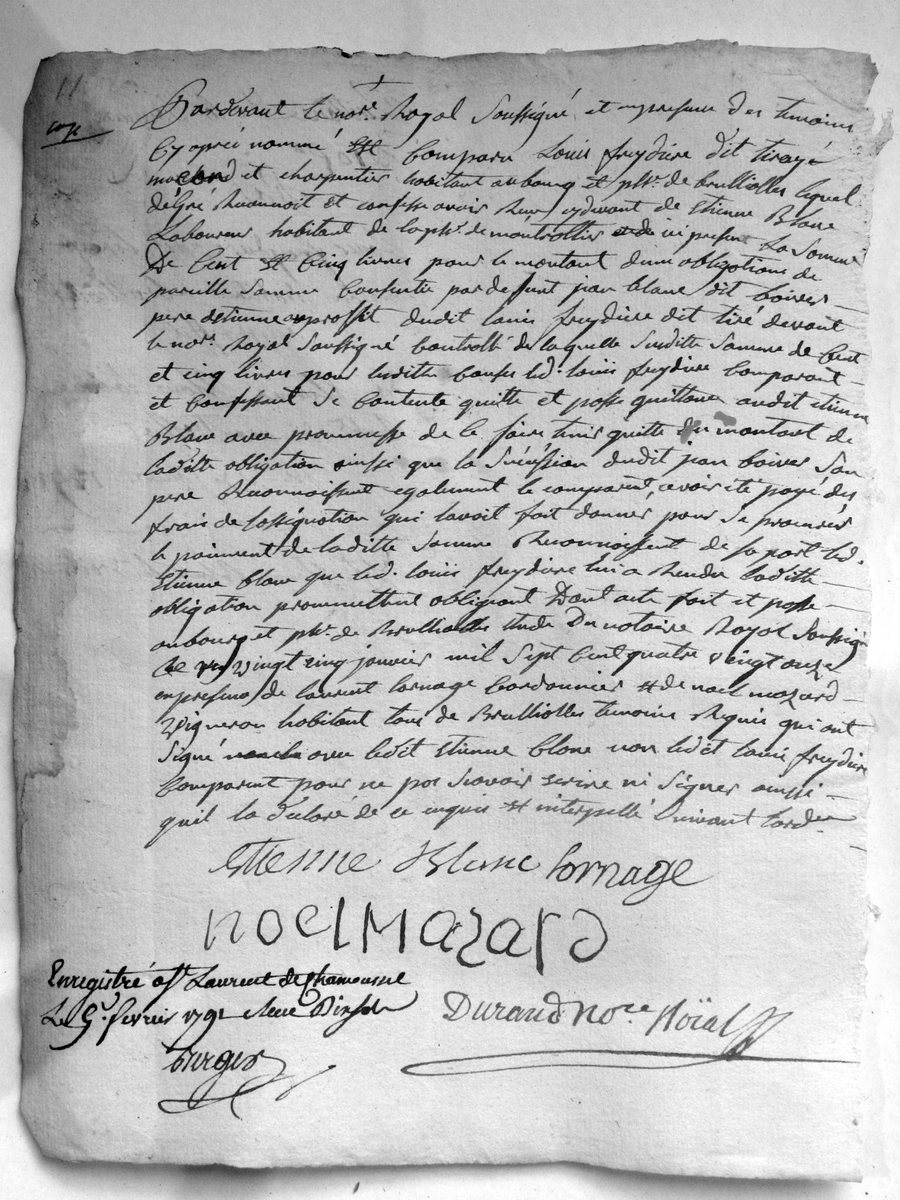 11
Pardevant le nore. Royal Soussigné et en presence des temoins
Cy aprés nommé Est Comparu Louis freydiere dit tiragé
et charpentier habitant au bourg et psse. de brulliolles lequel
de gré Reconnoit et confesse avoir Reçu cydevant de Etienne Blanc
Laboureur habitant de la psse. de montrottier ici present La Somme
De Cent Et Cinq livres pour le montant d'une obligations de
pareille Somme Consentie par deffunt jean blanc dit boiver
pere detienne au proffit dudit louis freydiere dit tiré devant
le nore. Royal Soussigné Controllé de laquelle Suditte Somme de Cent
et cinq livres pour leditte led. louis freydiere Comparant
et Confessant Se Contente quitte et passe quittance audit etienne
Blanc avec prommesse de le faire tenir quitte du montant de
laditte obligation ainsi que la Sucession dudit jean boiver Son
pere Reconnoissant egalement le comparent, avoir eté payé des
frais de lassignation qui lavoit fait donner pour Se procurer
le paiment de laditte Somme Reconnoissent de sa part led.
Etienne blanc que led. louis freydiere lui a Rendu laditte
obligation promettent obligeant Dont acte fait et passé
au bourg et psse. de Brulliolles Etude Du notaire Royal Soussigné
Ce vingt cinq janvier mil Sept Cent quatre vingt onze
en presence de laurent Cornage Cordonnier Et de noel mazard
Vigneron habitant tous de Brulliolles temoins Requis qui ont
Signé avec ledit Etienne blanc non ledit louis freydiere
Comparent pour ne pas Scavoir ecrire ni Signer ainssi
quil la declaré de ce enquis Et interpellé Suivant lord.
etienne Blanc Cornage
noel Mazard
Enregistré a St. Laurent de Chamousset
Le 5 fevrier 1791
Durand Nore. Roïal